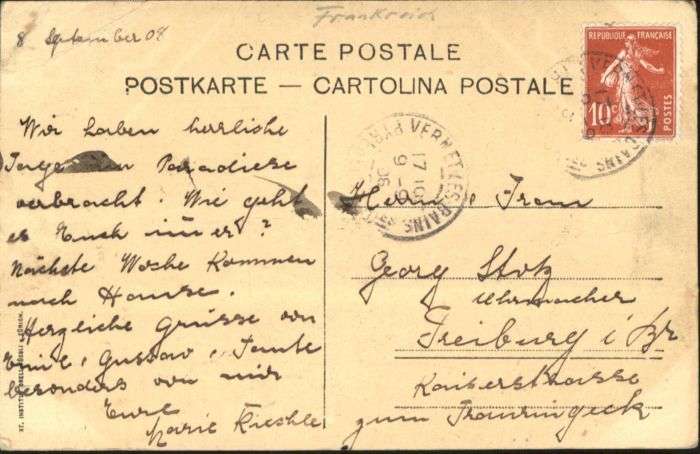 Frankreich
8 September 08
CARTE POSTALE
POSTKARTE — CARTOLINA POSTALE
REPUBLIQUE FRANÇAISE
10c
POSTES
VERNET-LES-BAINS
17 10
9 - 9
08
Wir haben herrliche
Tage Paradiese
verbracht. Wie geht
es Euch
Nächste Woche kommen
nach Hause.
Herzliche Grüsse von
Emil, Gustav, Tante
besonders von mir
Eure
Marie
Herrn & Frau
Georg Stotz
Uhrmacher
Freiburg i/Br
Kaiserstrasse
zum Trauringeck